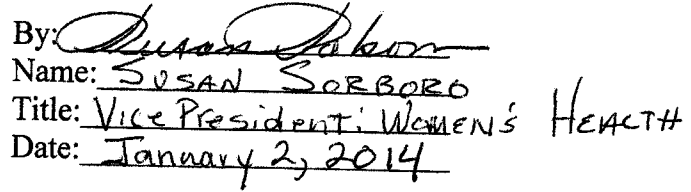 By:
Name: SUSAN SORBORO
Title: Vice President: WOMEN'S HEALTH
Date: January 2, 2014